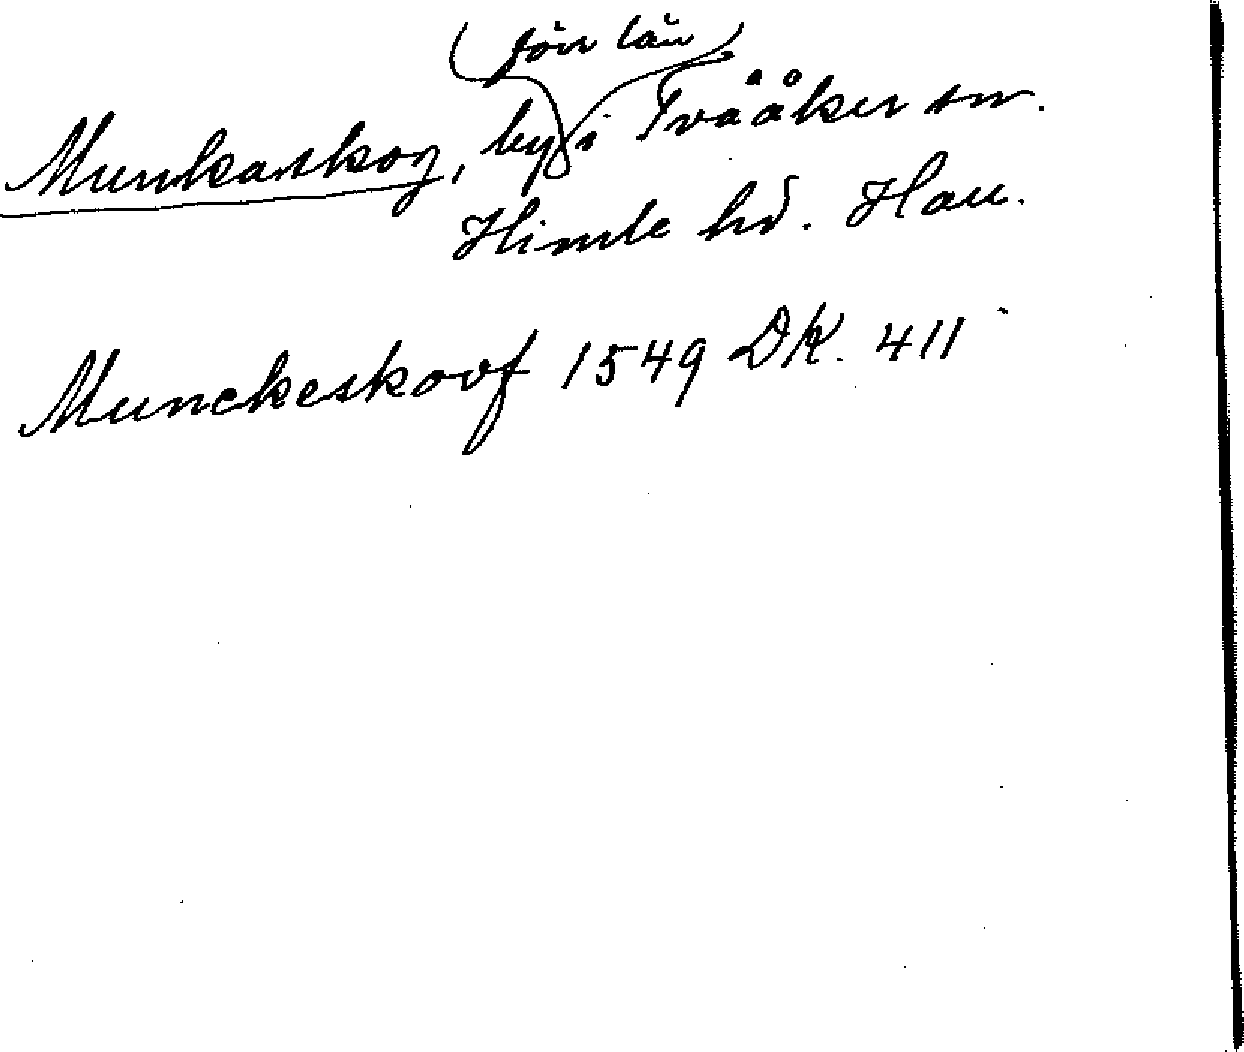 (förr län)
Munkaskog, by i Tvååker sn.
Himle hd. Hall.
Munckeskovf 1549 DK. 411